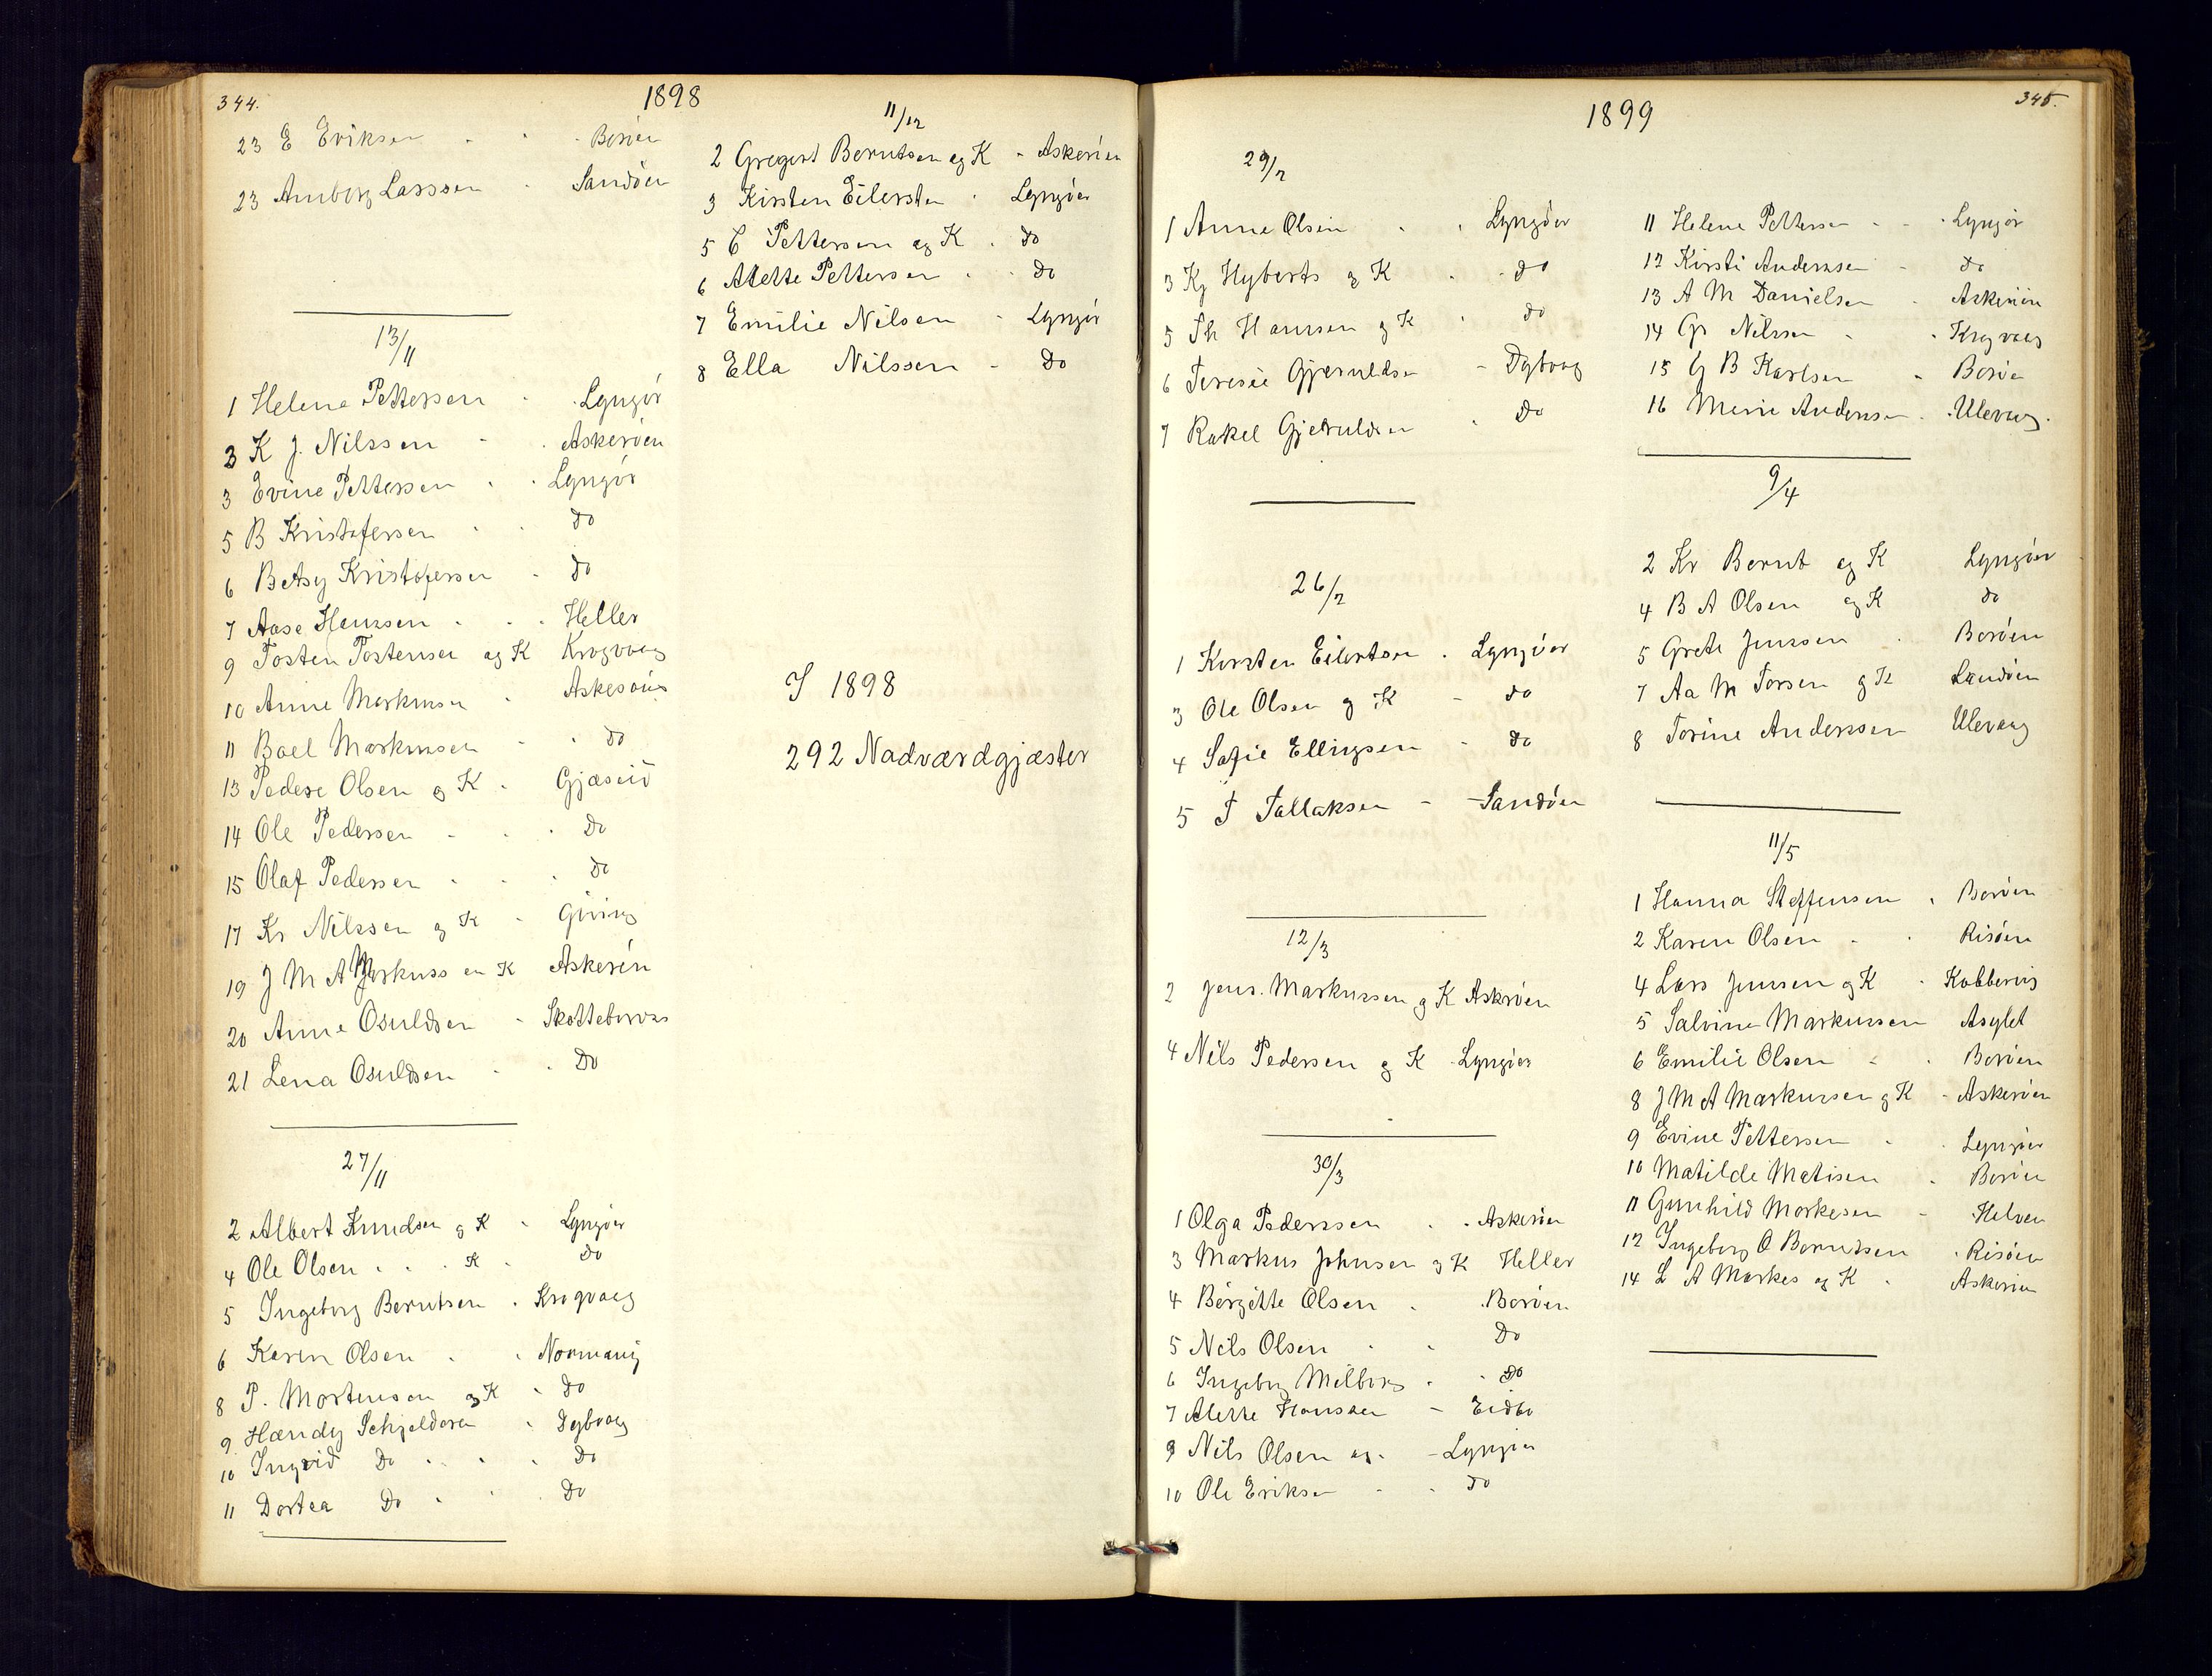 344.
1898
23 E Eriksen - - Borøen
23 Amberg Larssen - Sandøen
13/11
1 Helene Pettersen - Lyngør
3 K J. Nilssen - - Askerøen
3 Evine Pettersen - - Lyngør
5 B Kristofersen - - do
6 Betsy Kristofersen - do
7 Aase Hanssen - - - Heller
9 Tosten Tostensen og K Krogvaag
10 Anne Markussen - Askerøen
11 Boel Markussen - - do
13 Peder Olsen og K - Gjæseid
14 Ole Pedersen - - - Do
15 Olaf Pedersen - - - Do
17 Kr Nilssen og K - Giving
19 J M A Markussen K Askerøen
20 Anne Osuldsen - Skottebervas
21 Lena Osuldsen - - Do
27/11
2 Albert Knudsen og K - Lyngøer
4 Ole Olsen - - - K - Do
5 Ingeborg Berntsen - Krogvaag
6 Karen Olsen - - Normanvig
8 P. Mortensen og K - Do
9 Handy Schjeldosen - Dybvaag
10 Ingvid Do - - - Do
11 Dortea Do - - - Do
11/12
2 Gregert Berntsen og K - Askerøen
3 Kirsten Eilersten - Lyngøer
5 C Pettersen og K - do
6 Alette Pettersen - - do
7 Emilie Nilsen - Lyngør
8 Ella Nilssen - Do
I 1898
292 Nadværdgjæster
345.
1899
29/2
1 Anne Olsen - - Lyngøer
3 Kj Hyberts og K - - do
5 Th Hansen og K - do
6 Teresie Gjeruldsen - Dybvaag
7 Rakel Gjeruldsen - Do
26/2
1 Kirsten Eilertsen - Lyngøer
3 Ole Olsen og K - do
4 Sofie Ellingsen - do
5 T Tallaksen - - Sandøen
12/3
2 Jens. Markussen og K Askerøen
4 Nils Pedersen og K - Lyngøer
30/3
1 Olga Pederssen - - Askerøen
3 Markus Johnsen og K Heller
4 Börgitte Olsen - - Borøen
5 Nils Olsen - - Do
6 Ingeborg Melberg - - Do
7 Alette Hanssen - Eidbo
9 Nils Olsen og - - Lyngøer
10 Ole Eriksen - - do
11 Helene Pettersen - - - Lyngør
12 Kirsti Anderssen - do
13 A M Danielsen - Askerøen
14 Gr Nilssen - - Krogvaag
15 G B Karlsen - Borøen
16 Merie Anderssen - - Ulevaag.
9/4
2 Kr Bernt og K Lyngøer
4 B A Olsen og K do
5 Grete Jenssen - Borøen
7 Aa M Torsen og K Sandøen
8 Torine Anderssen Ulevaag
11/5
1 Hanna Steffensen - Borøen
2 Karen Olsen - - Risøen
4 Lars Jensen og K - Kobbervig
5 Salvine Markussen Asylet
6 Emilie Olsen - - Borøen
8 J M A Markussen og K - Askerøen
9 Evine Pettersen - - Lyngøer
10 Matilde Matisen - Borøen
11 Gunhild Markesen - Helven
12 Ingeborg O Berndtsen - Risøen
14 L A Markes og K - Askerøen